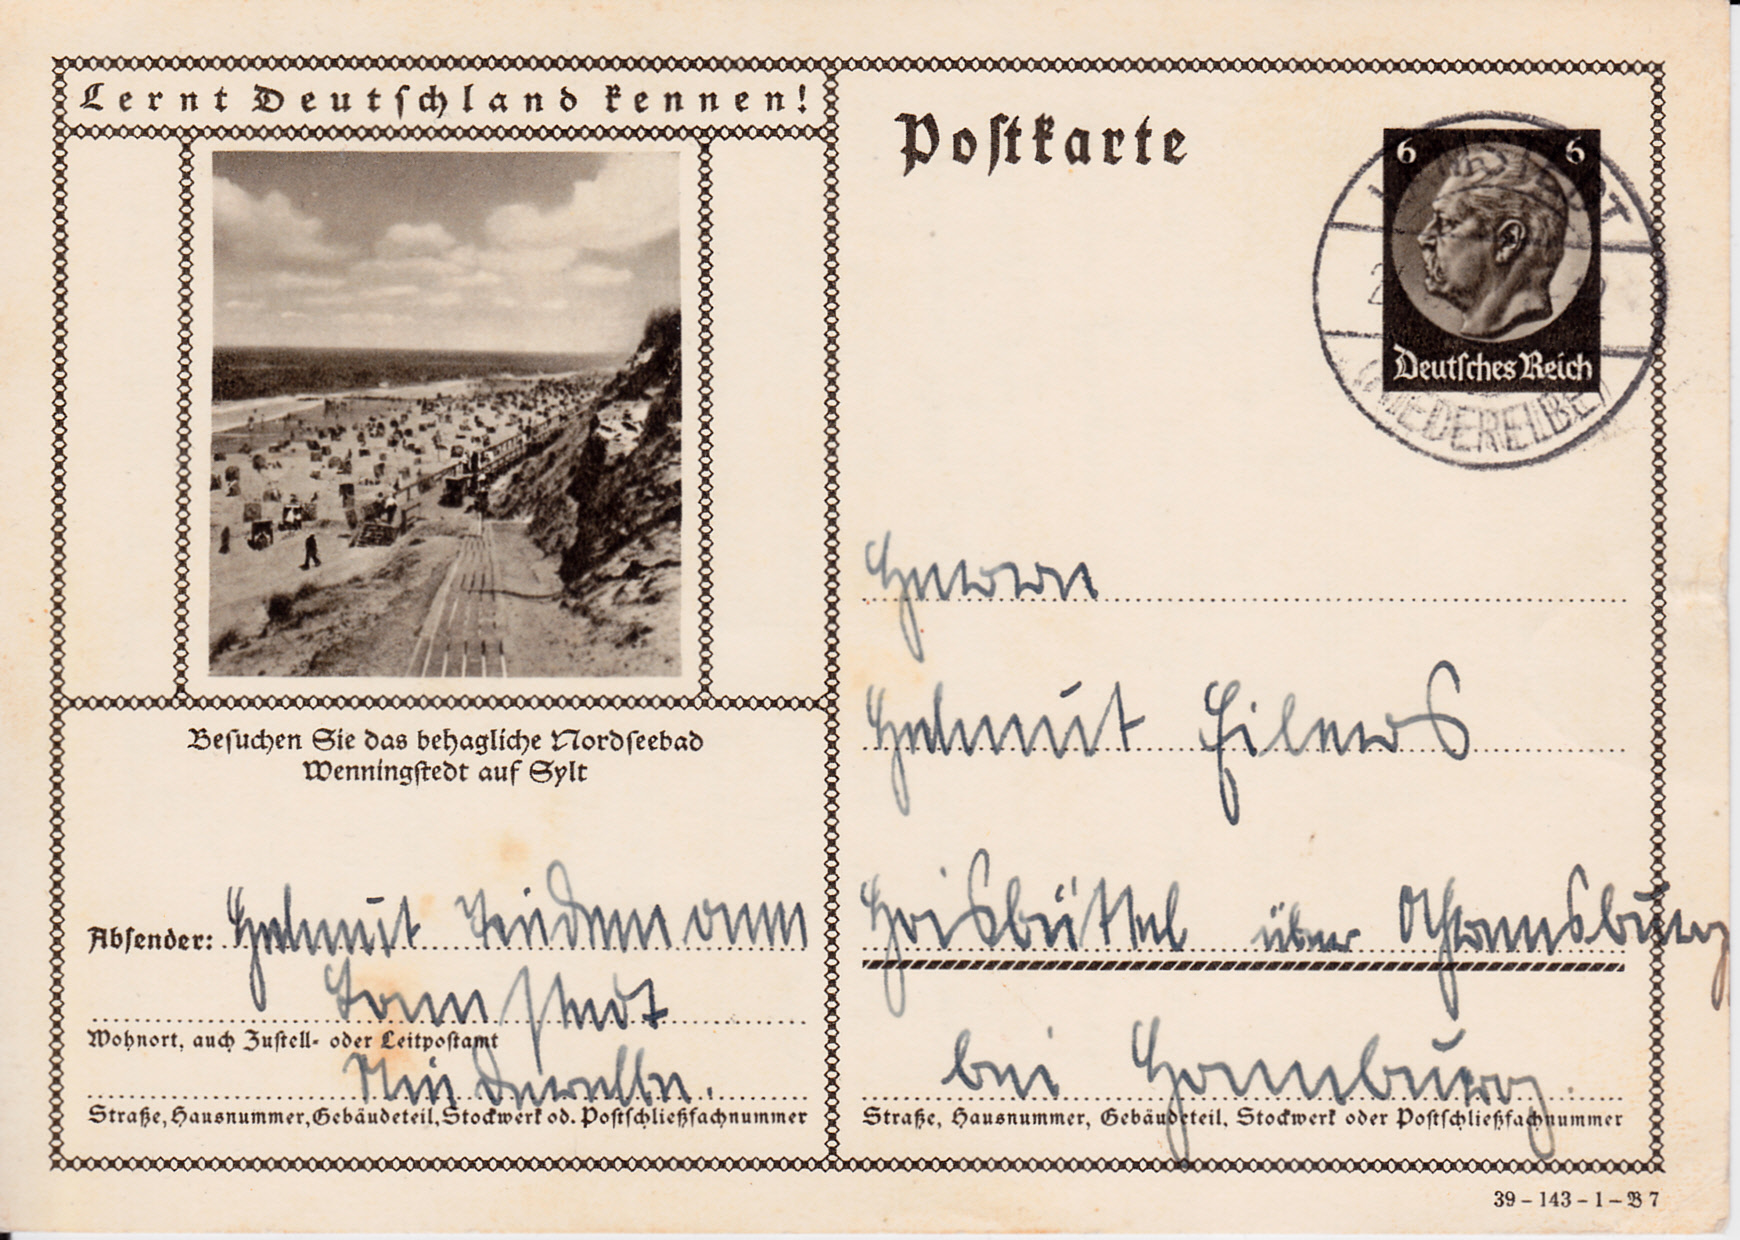 Lernt Deutschland kennen!
Postkarte
6 6
Deutsches Reich
(NIEDERELBE)
Besuchen Sie das behagliche Nordseebad
Wenningstedt auf Sylt
Absender: Helmut Tiedemann
Lamstedt
Wohnort, auch Zustell- oder Leitpostamt
Niederelbe.
Straße, Hausnummer, Gebäudeteil, Stockwerk od. Postschließfachnummer
Herrn
Helmut Eilers
Hoisbüttel über Ahrensburg
bei Hamburg.
Straße, Hausnummer, Gebäudeteil, Stockwerk oder Postschließfachnummer
39 – 143 – 1 – B 7